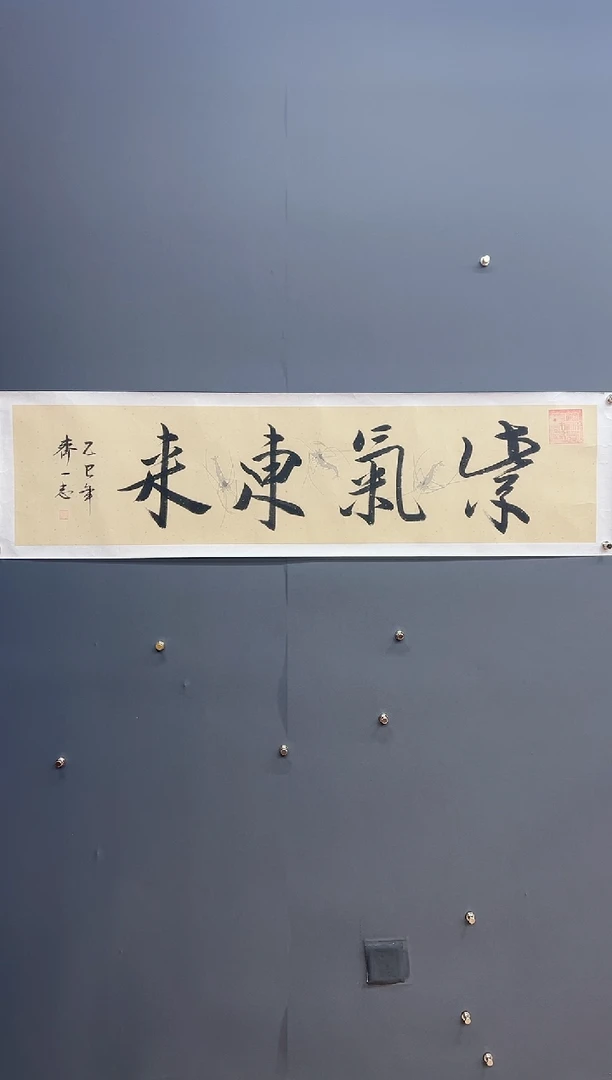 紫氣東来
乙巳年
齊一志